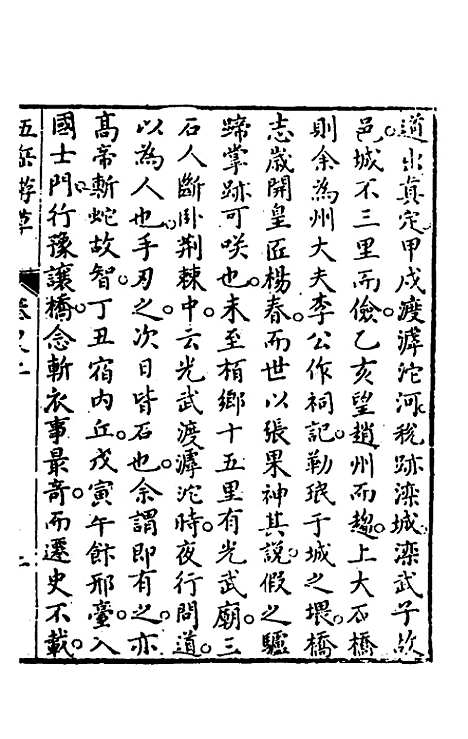 道出真定甲戌渡滹沱河稅跡滦城滦武子故
邑城不三里而儉乙亥望趙州而趨上大石橋
則余為州大夫李公作祠記勒珉于城之堧橋
志歲開皇匠楊春而世以張果神其說假之驢
蹄掌跡可咲也未至栢鄉十五里有光武廟三
石人斷卧荆棘中云光武渡滹沱時夜行問道
以為人也手刃之次日皆石也余謂即有之亦
高帝斬蛇故智丁丑宿內丘戊寅午飰邢臺入
國士門行豫讓橋念斬衣事最奇而遷史不載
五嶽游草 卷之二